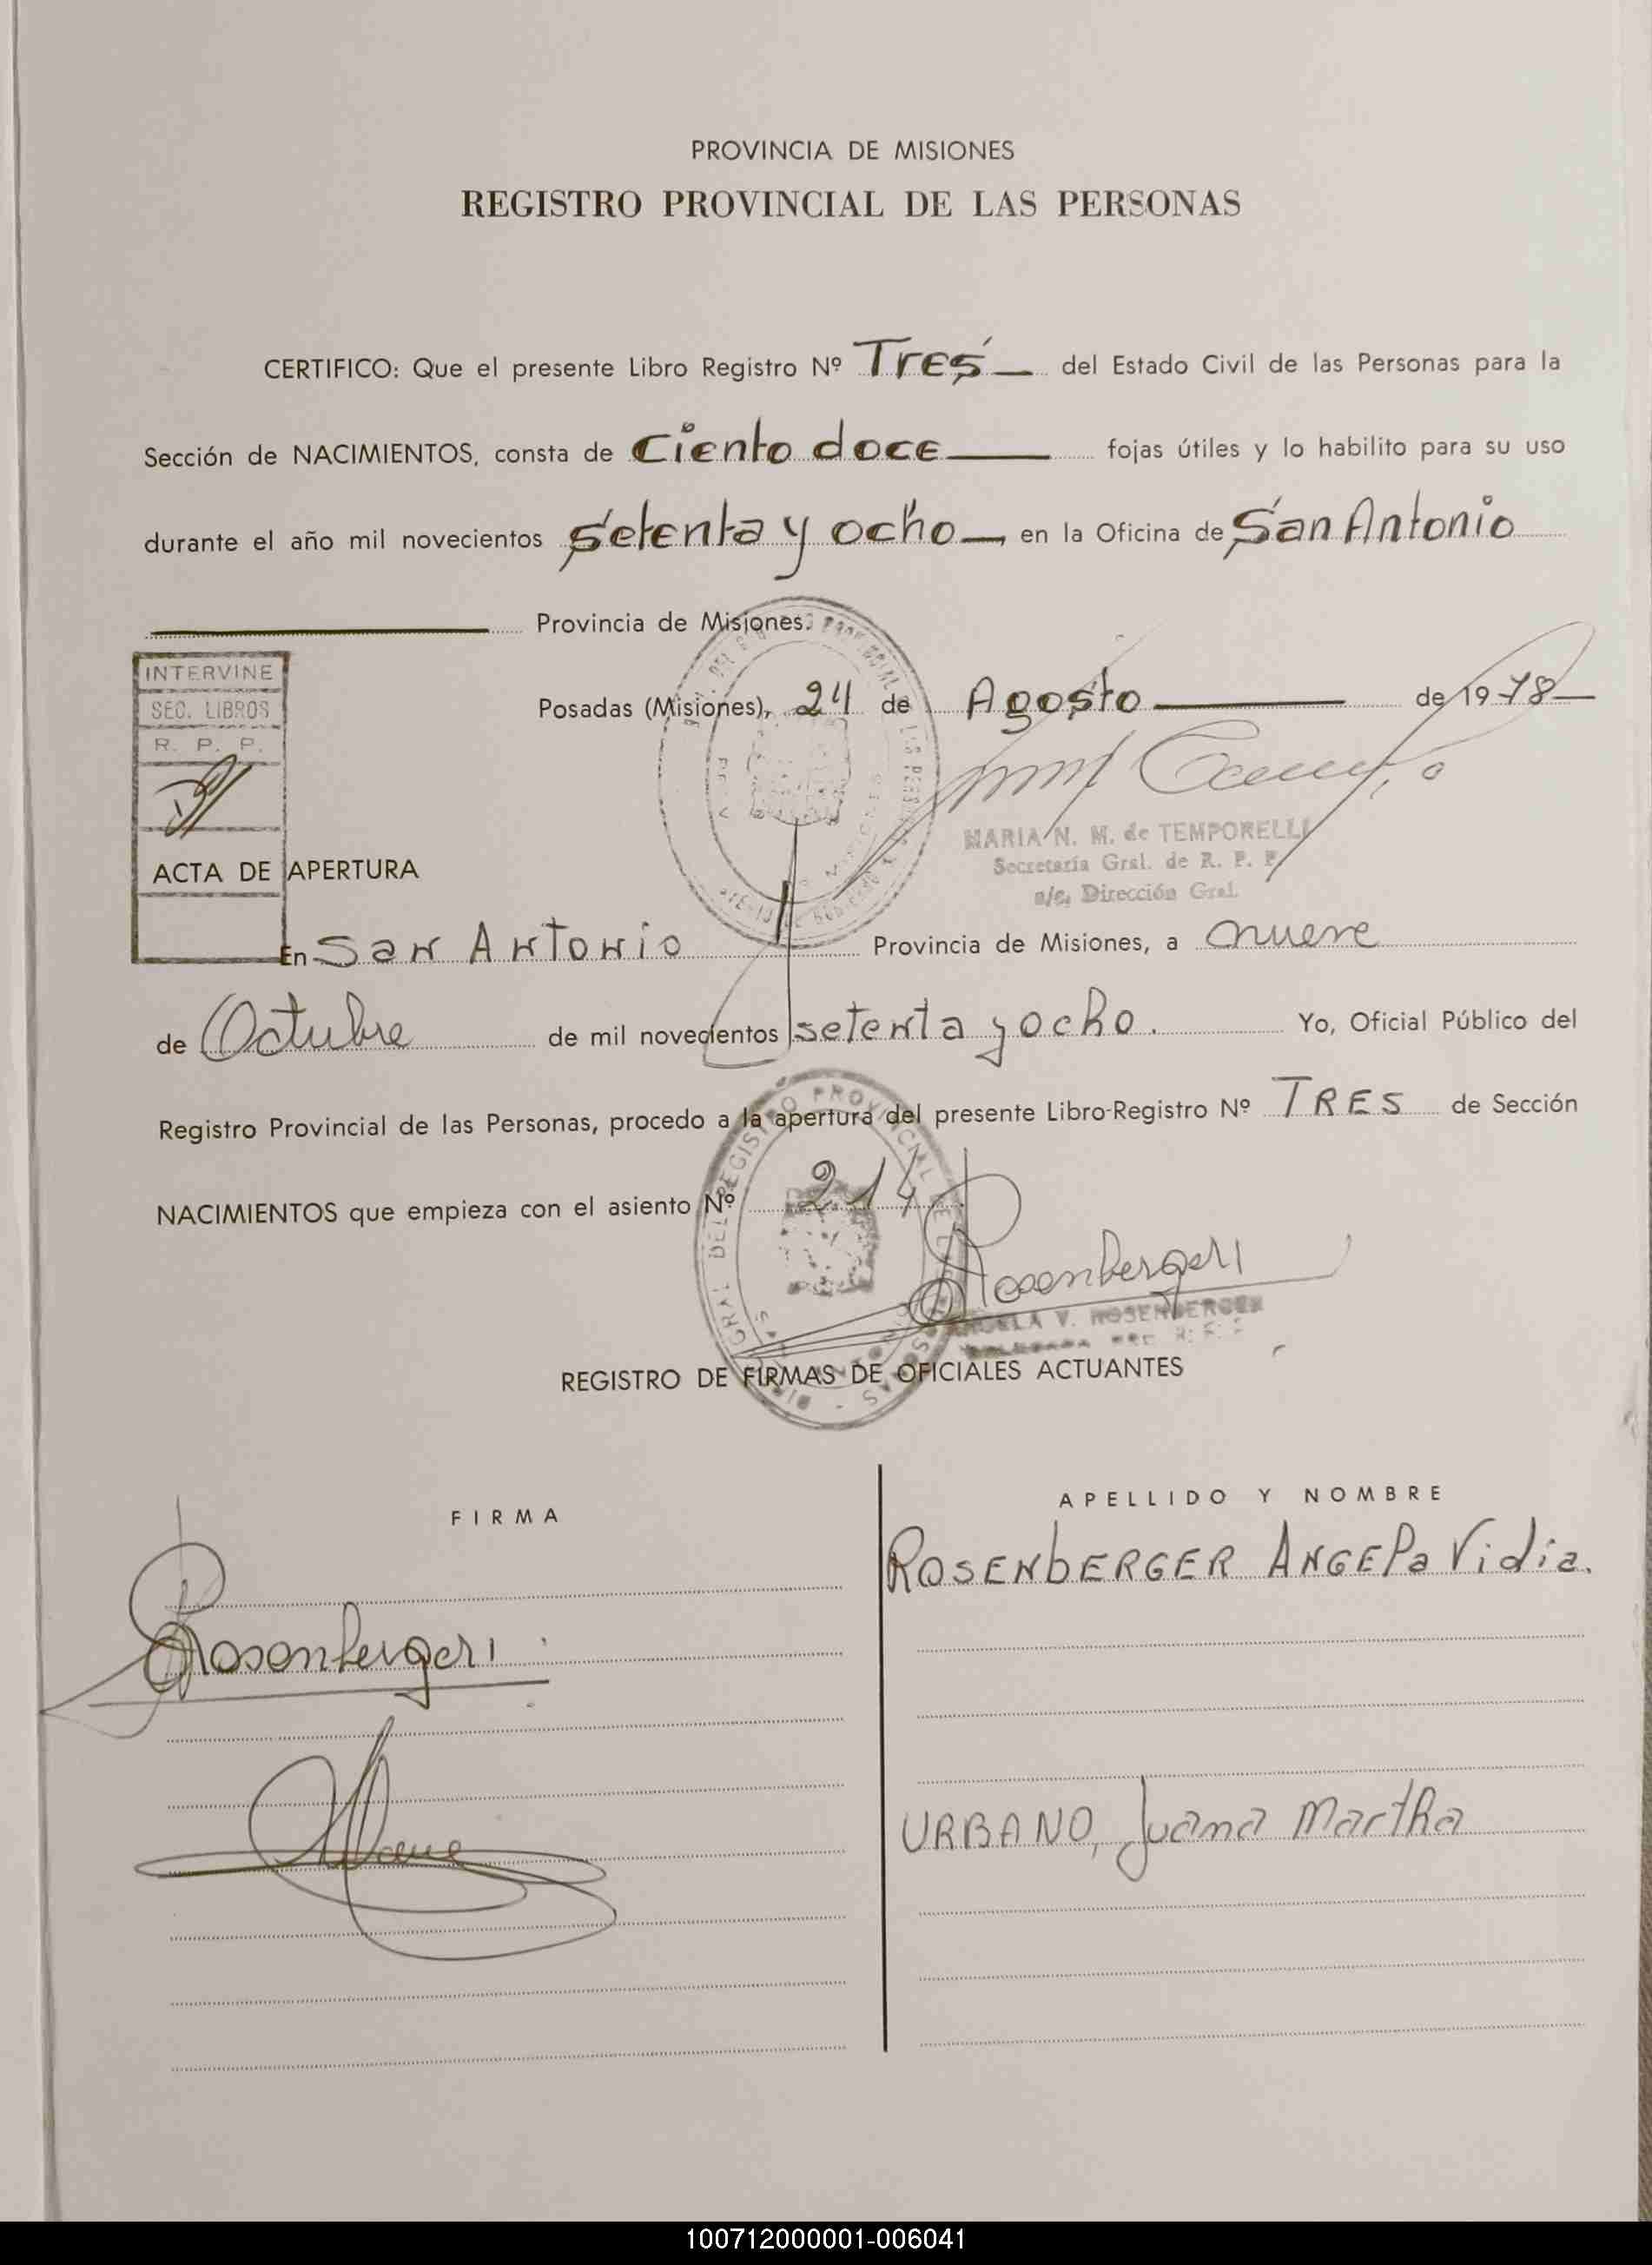 PROVINCIA DE MISIONES
REGISTRO PROVINCIAL DE LAS PERSONAS
CERTIFICO: Que el presente Libro Registro Nº Tres del Estado Civil de las Personas para la
Sección de NACIMIENTOS, consta de Ciento doce fojas útiles y lo habilito para su uso
durante el año mil novecientos setenta y ocho en la Oficina de San Antonio
Provincia de Misiones.
INTERVINE
SEC. LIBROS
R. P. P.
Posadas (Misiones), 24 de Agosto de 1978
MARIA N. M. de TEMPORELLI
Secretaría Gral. de R. P. P.
a/c. Dirección Gral.
ACTA DE APERTURA
En San Antonio Provincia de Misiones, a nueve
de Octubre de mil novecientos setenta y ocho. Yo, Oficial Público del
Registro Provincial de las Personas, procedo a la apertura del presente Libro-Registro Nº TRES de Sección
NACIMIENTOS que empieza con el asiento Nº 214
Rosenberger
ANGELA V. ROSENBERGER
REGISTRO DE FIRMAS DE OFICIALES ACTUANTES
FIRMA
APELLIDO Y NOMBRE
ROSENbERGER ANGEla Vidia.
Rosenberger
URBANO, Juana Martha
100712000001-006041